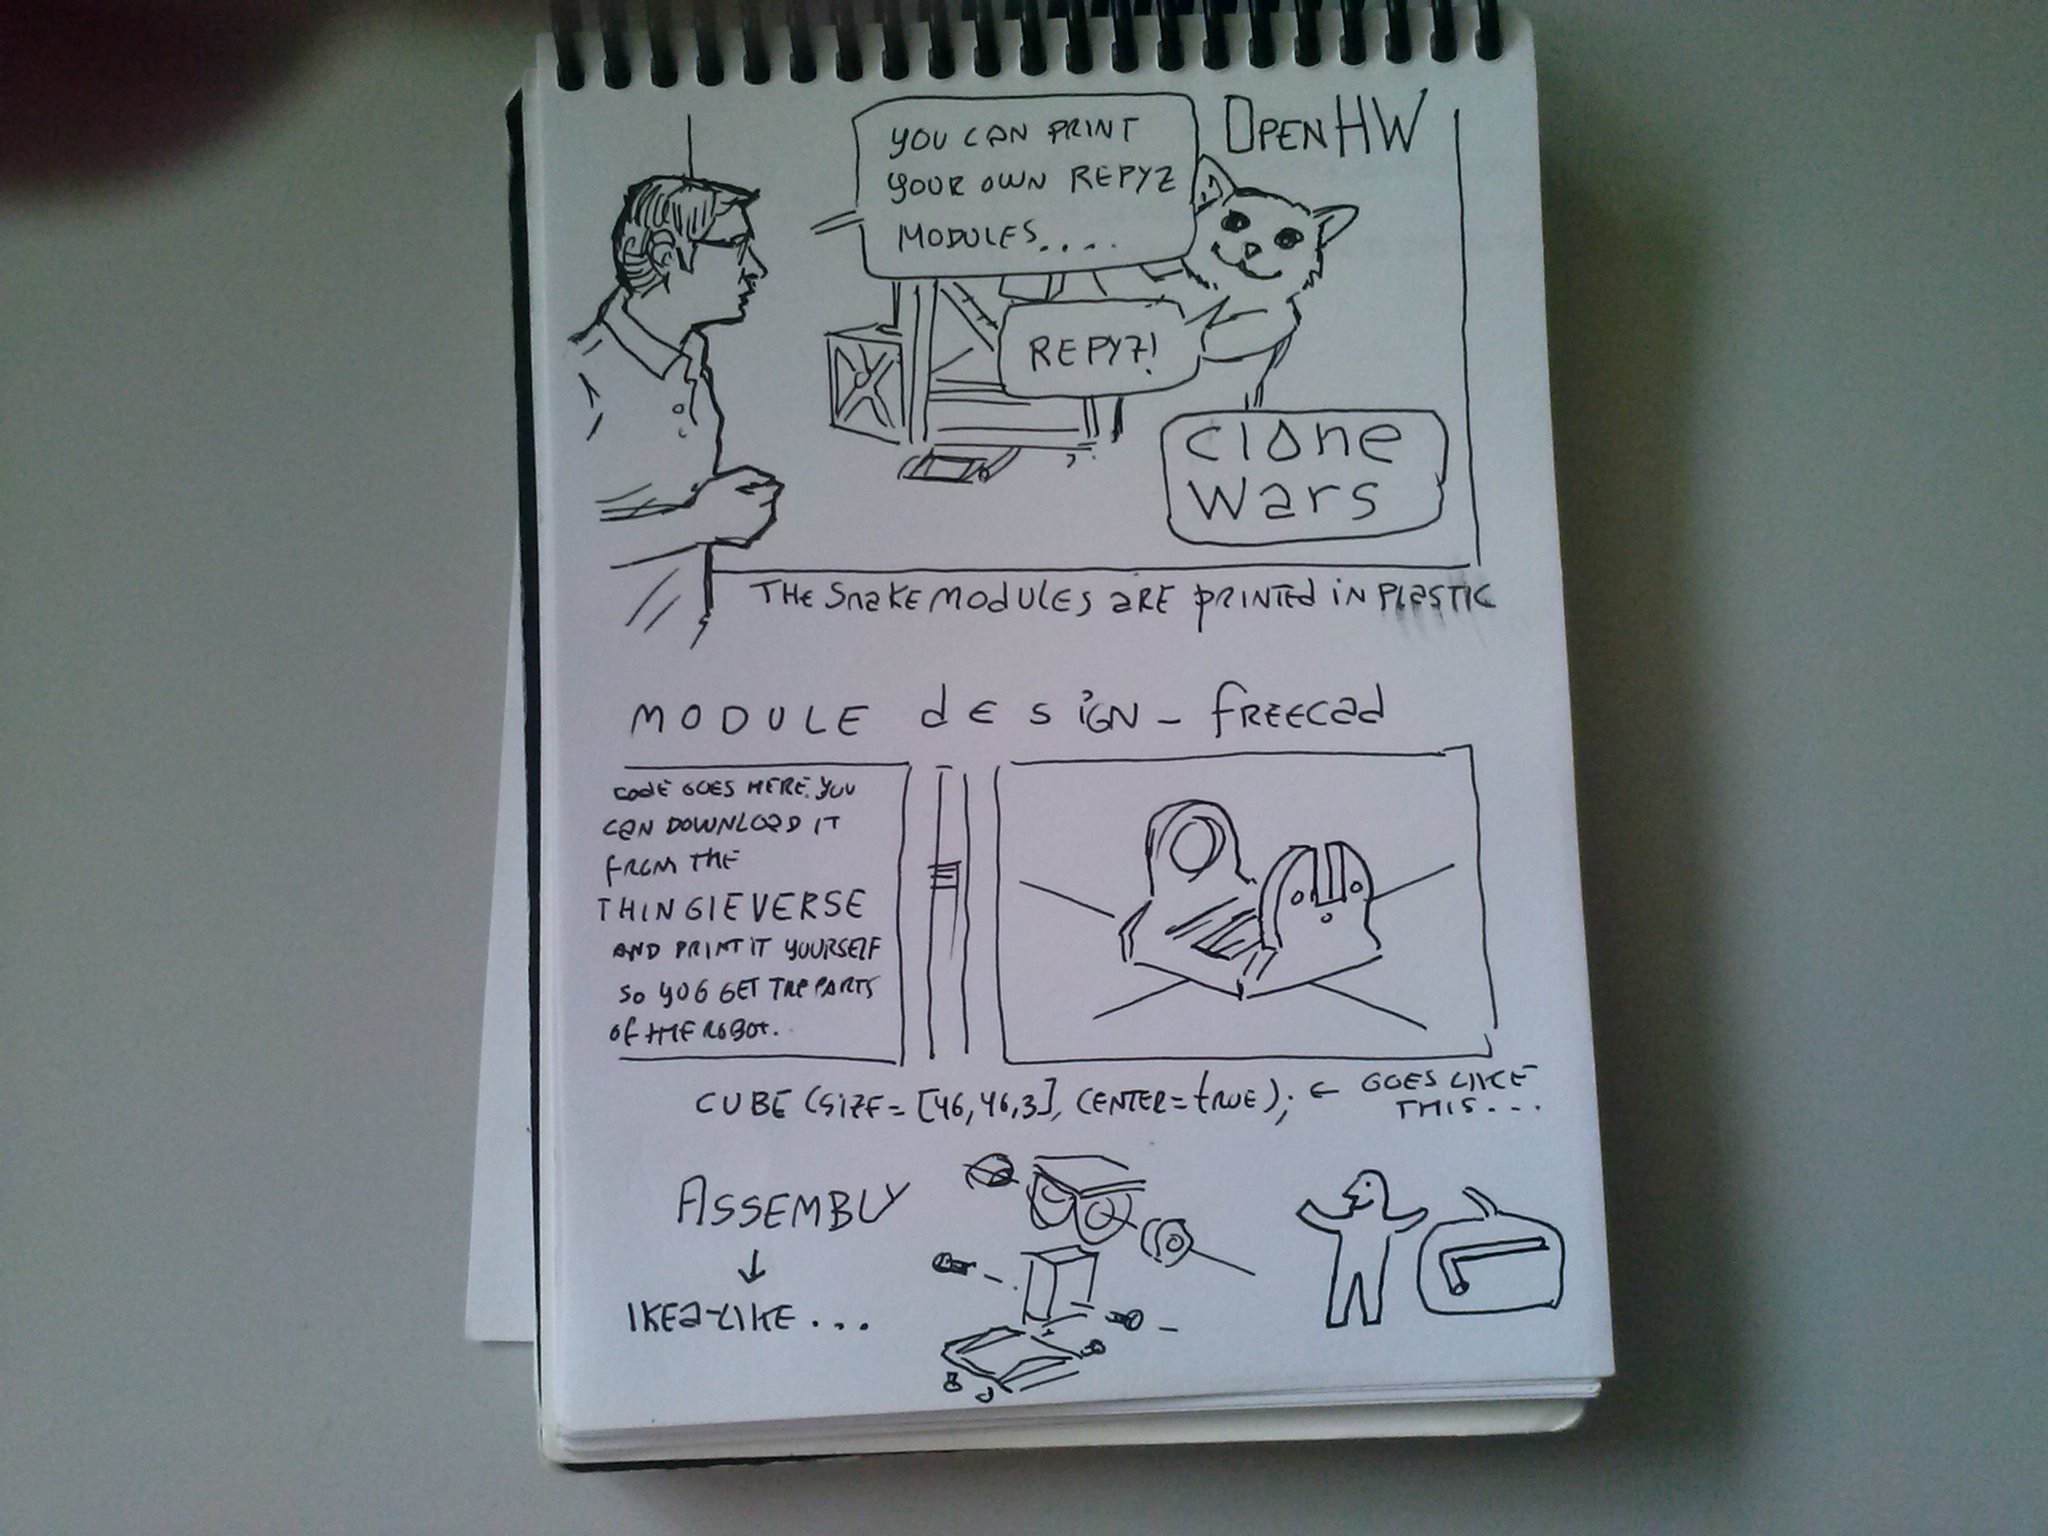 OPENHW
YOU CAN PRINT
YOUR OWN REPYZ
MODULES....
REPYZ!
clone
wars
THE SNAKE MODULES ARE PRINTED IN PLASTIC
MODULE dESIGN - fREECad
CODE GOES HERE. YOU
CAN DOWNLOAD IT
FROM THE
THINGIEVERSE
AND PRINT IT YOURSELF
SO YOU GET THE PARTS
OF THE ROBOT..
CUBE (SIZE = [46,46,3], CENTER = trUE); ← GOES LIKE
THIS...
ASSEMBLY
↓
IKEa-LIKE...